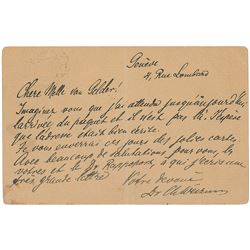 Genève
4, Rue Lombard
Chère Melle van Gelder!
Imaginez vous que j'ai attendu jusqu'aujourd'hui
l'arrivée du paquet et il n'est pas là. J'espère
que l'adresse était bien écrite.
Je vous enverrai ces jours des jolies cartes.
Avec beaucoup de salutations pour vous, les
votres et le Dr Rappoport, à qui j'écrirai une
très grande lettre
Votre dévoué
Dr Ch.